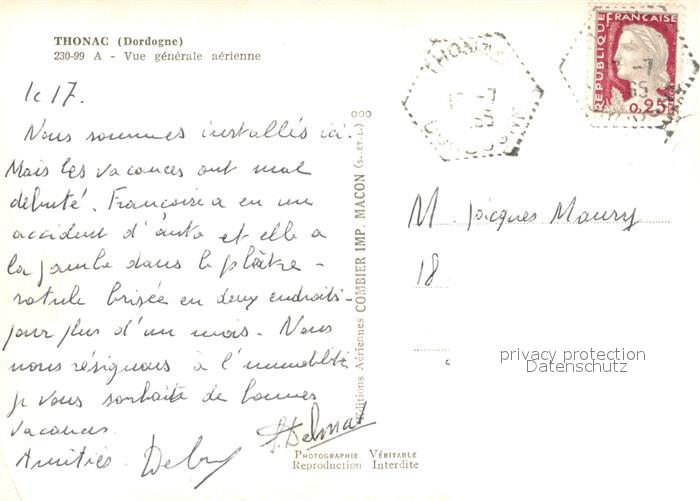 THONAC (Dordogne)
230-99 A - Vue générale aérienne
le 17.
Nous sommes installés ici.
Mais les vacances ont mal
débuté. Françoise a eu un
accident d'auto et elle a
la jambe dans le plâtre -
rotule brisée en deux endroits -
pour plus d'un mois. Nous
nous résignons à l'immobilité
je vous souhaite de bonnes
vacances.
Amitiés.
Editions Aériennes COMBIER IMP. MACON (S.-ET-L.)
PHOTOGRAPHIE VÉRITABLE
Reproduction Interdite
THONAC
DORDOGNE
REPUBLIQUE FRANÇAISE
0,25F
M. Jacques Maury
18
privacy protection
Datenschutz